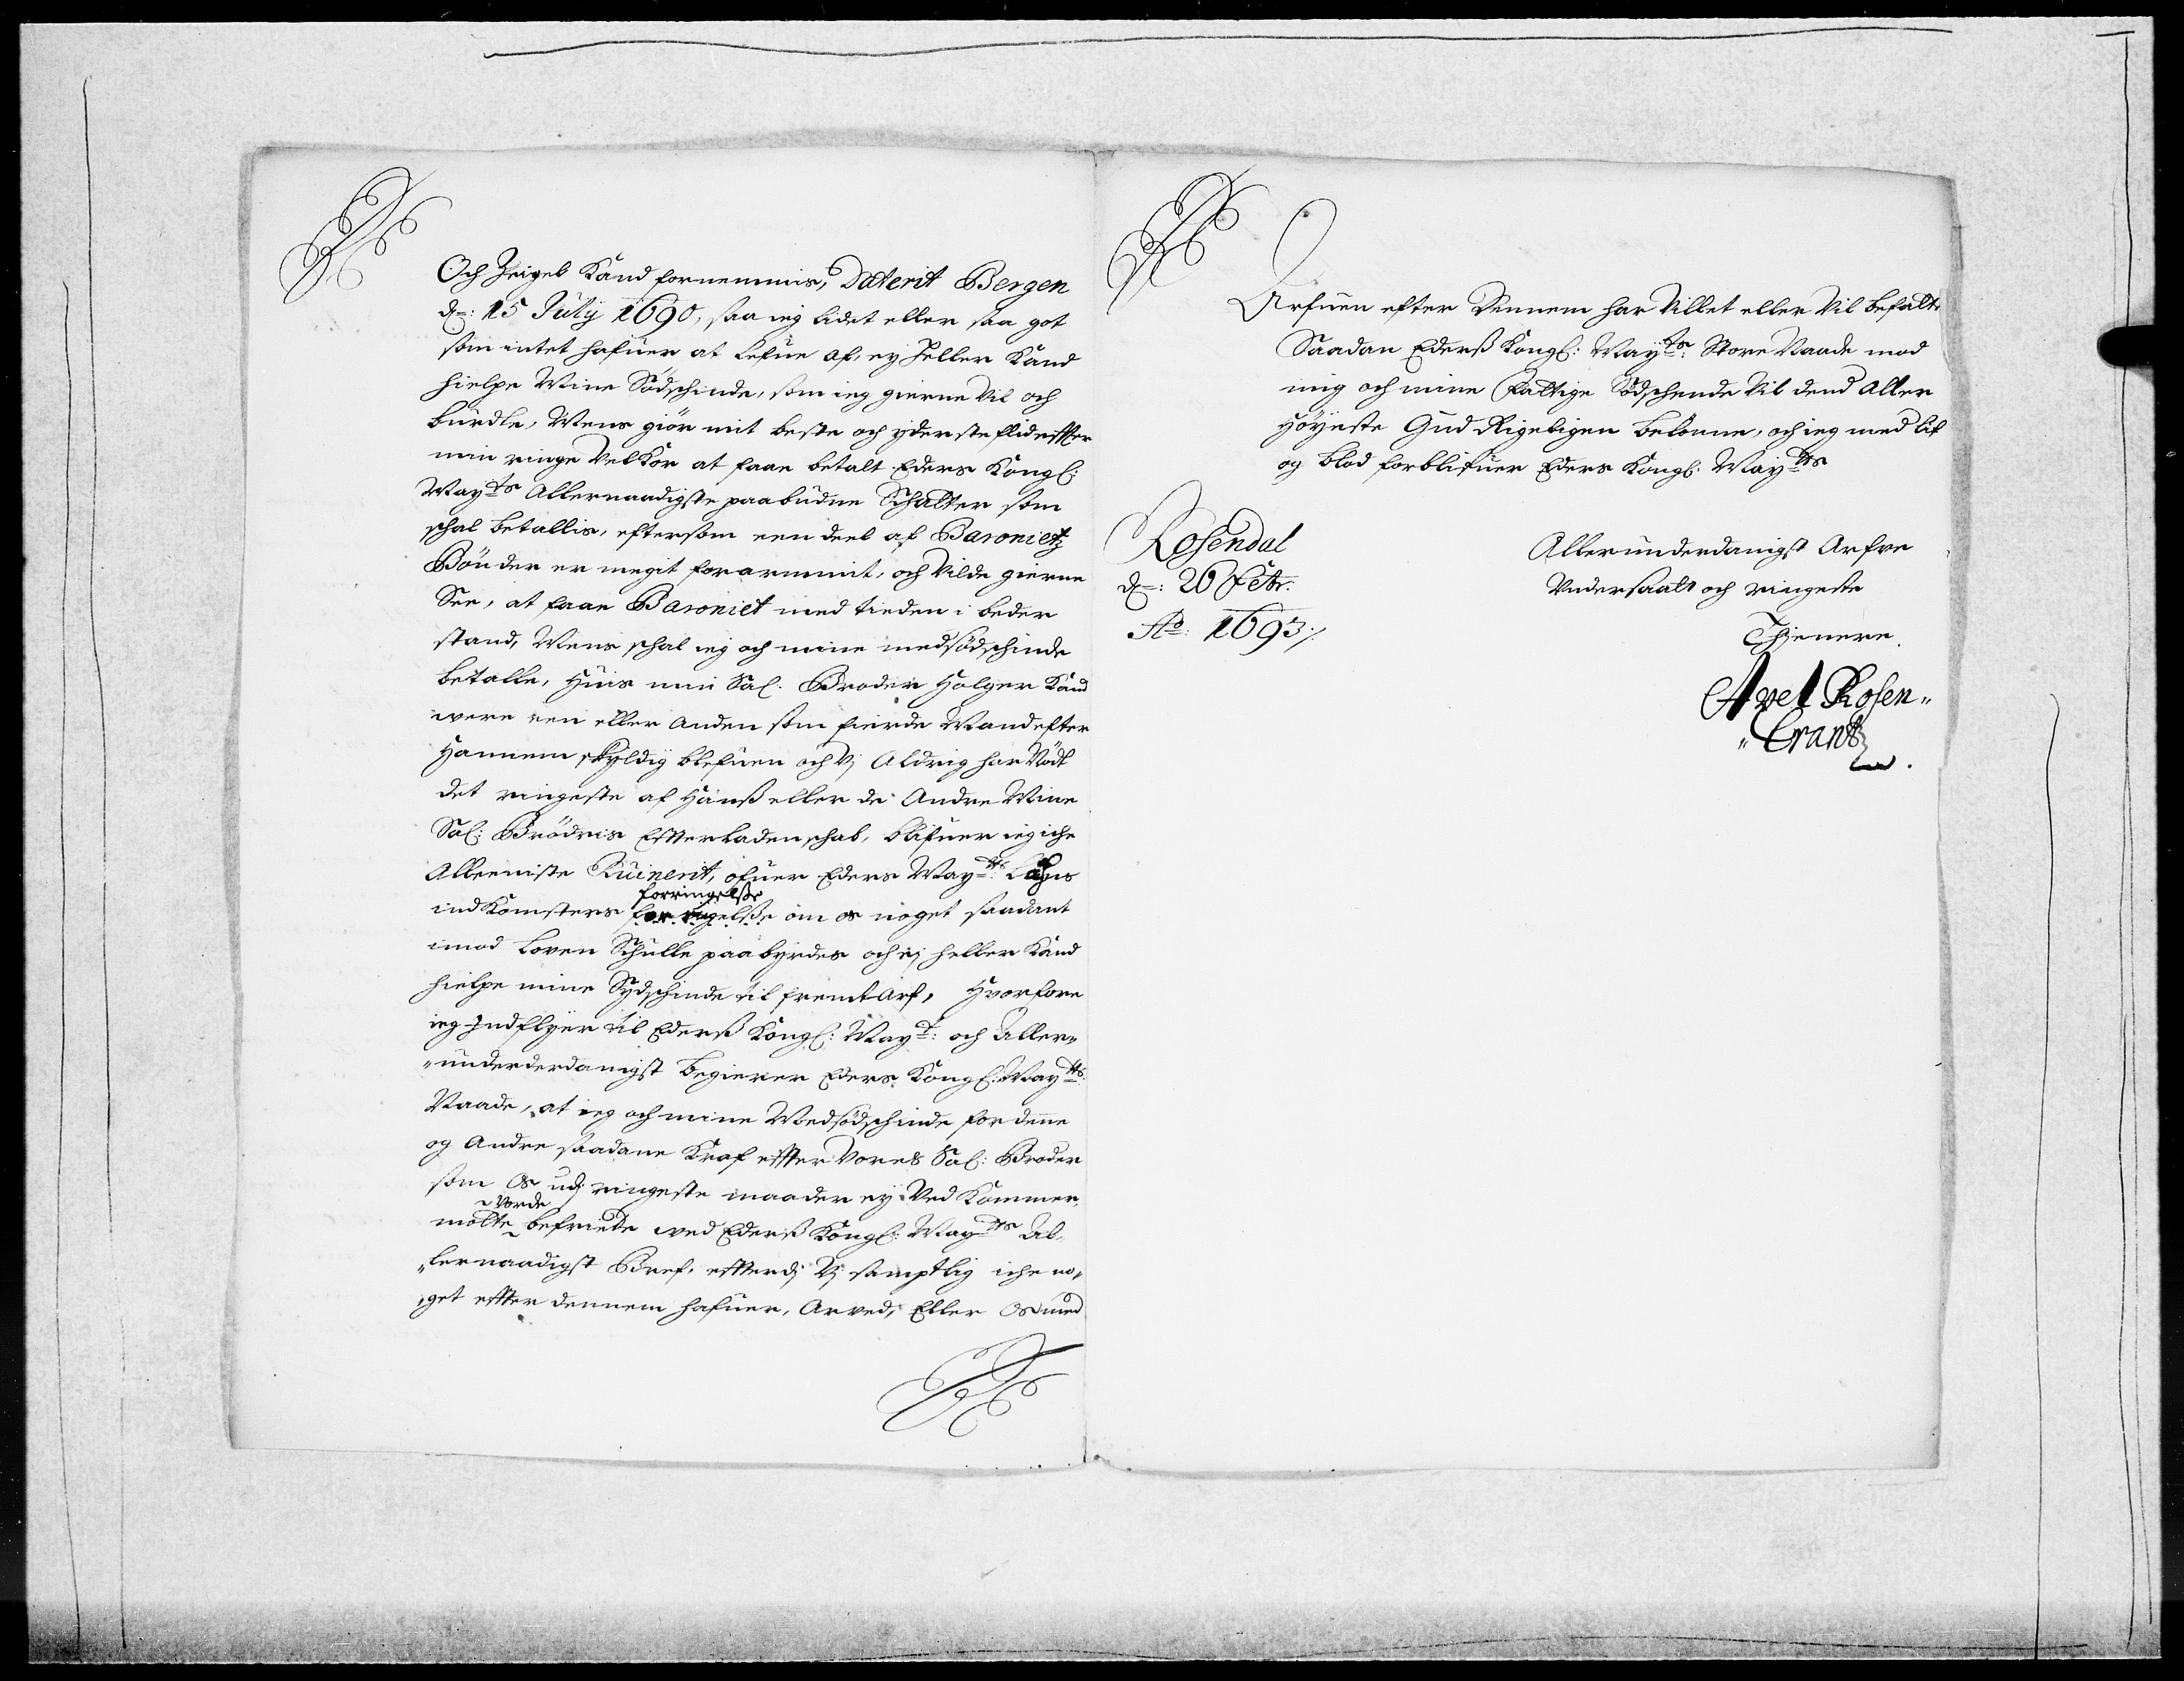 Och Zeigel Kand fornemmis, Daterit Bergen
dn: 15 July 1690, saa ieg lidet eller saa got
som intet hafuer at Lefue af, ey Heller Kand
hielpe Mine Södschinde, som ieg gierne Vil och
burdte, Mens giör mit beste och yderste flid effter
min ringe VelKor at faae betalt Eders Kongl:
Mayts Allernaadigste paabudne Schatter som
schal betallis, eftersom een deel af Baronietz
Bönder er megit forarmmit, och Vilde gierne
See, at faae Baroniet med tieden i beder
stand, Mens schal ieg och mine medsödschinde
betalle, Huis min Sal. Broder Holger Kand
were een eller Anden som fierde Mand efter
Hannem skyldig blefuen och Vj Aldrig har Nödt
det ringeste af Hanß eller de Andre Mine
Sal: Brödris Effterladenschab, blifuer ieg iche
Alleeniste Ruinerit, ofuer Eders Mayts:
indKomsters forringelße om os noget saadant
imod Loven Schulle paabyrdes och ej heller Kand
hielpe mine Sydschinde til fremt Arf, Hvorfore
ieg Indflyer til Ederß Kongl: Mayt: och Aller„
„underderdanigst begierer Eders Kongl: Mayts:
Naade, at ieg och mine Medsödschinde for denne
og Andre saadane Kraf effter Vores Sal: Broder
som Os udj ringeste maader ey Ved Kommer,
motte Vorde befriede ved Ederß Kongl: Mayts Al„
„lernaadigst Bref, effterdj Vj samptlig iche no„
„get effter dennem hafuer, Arved, Eller Os med
Arfuen efter Dennem har Villet eller Vil befatte
Saadan Ederß Kongl: Mayts: Store Naade mod
mig och mine Fattige Södschende Vil dend Aller
Höyeste Gud Rigeligen belönne, och ieg med Lif
og blod forblifuer Eders Kongl: Mayts
Rosendal
dn: 26 Febr:
Ao: 1693 ./.
Allerunderdanigst Arfve
Undersaatt och ringeste
Thienere.
Axel Rosen„
„Crantz